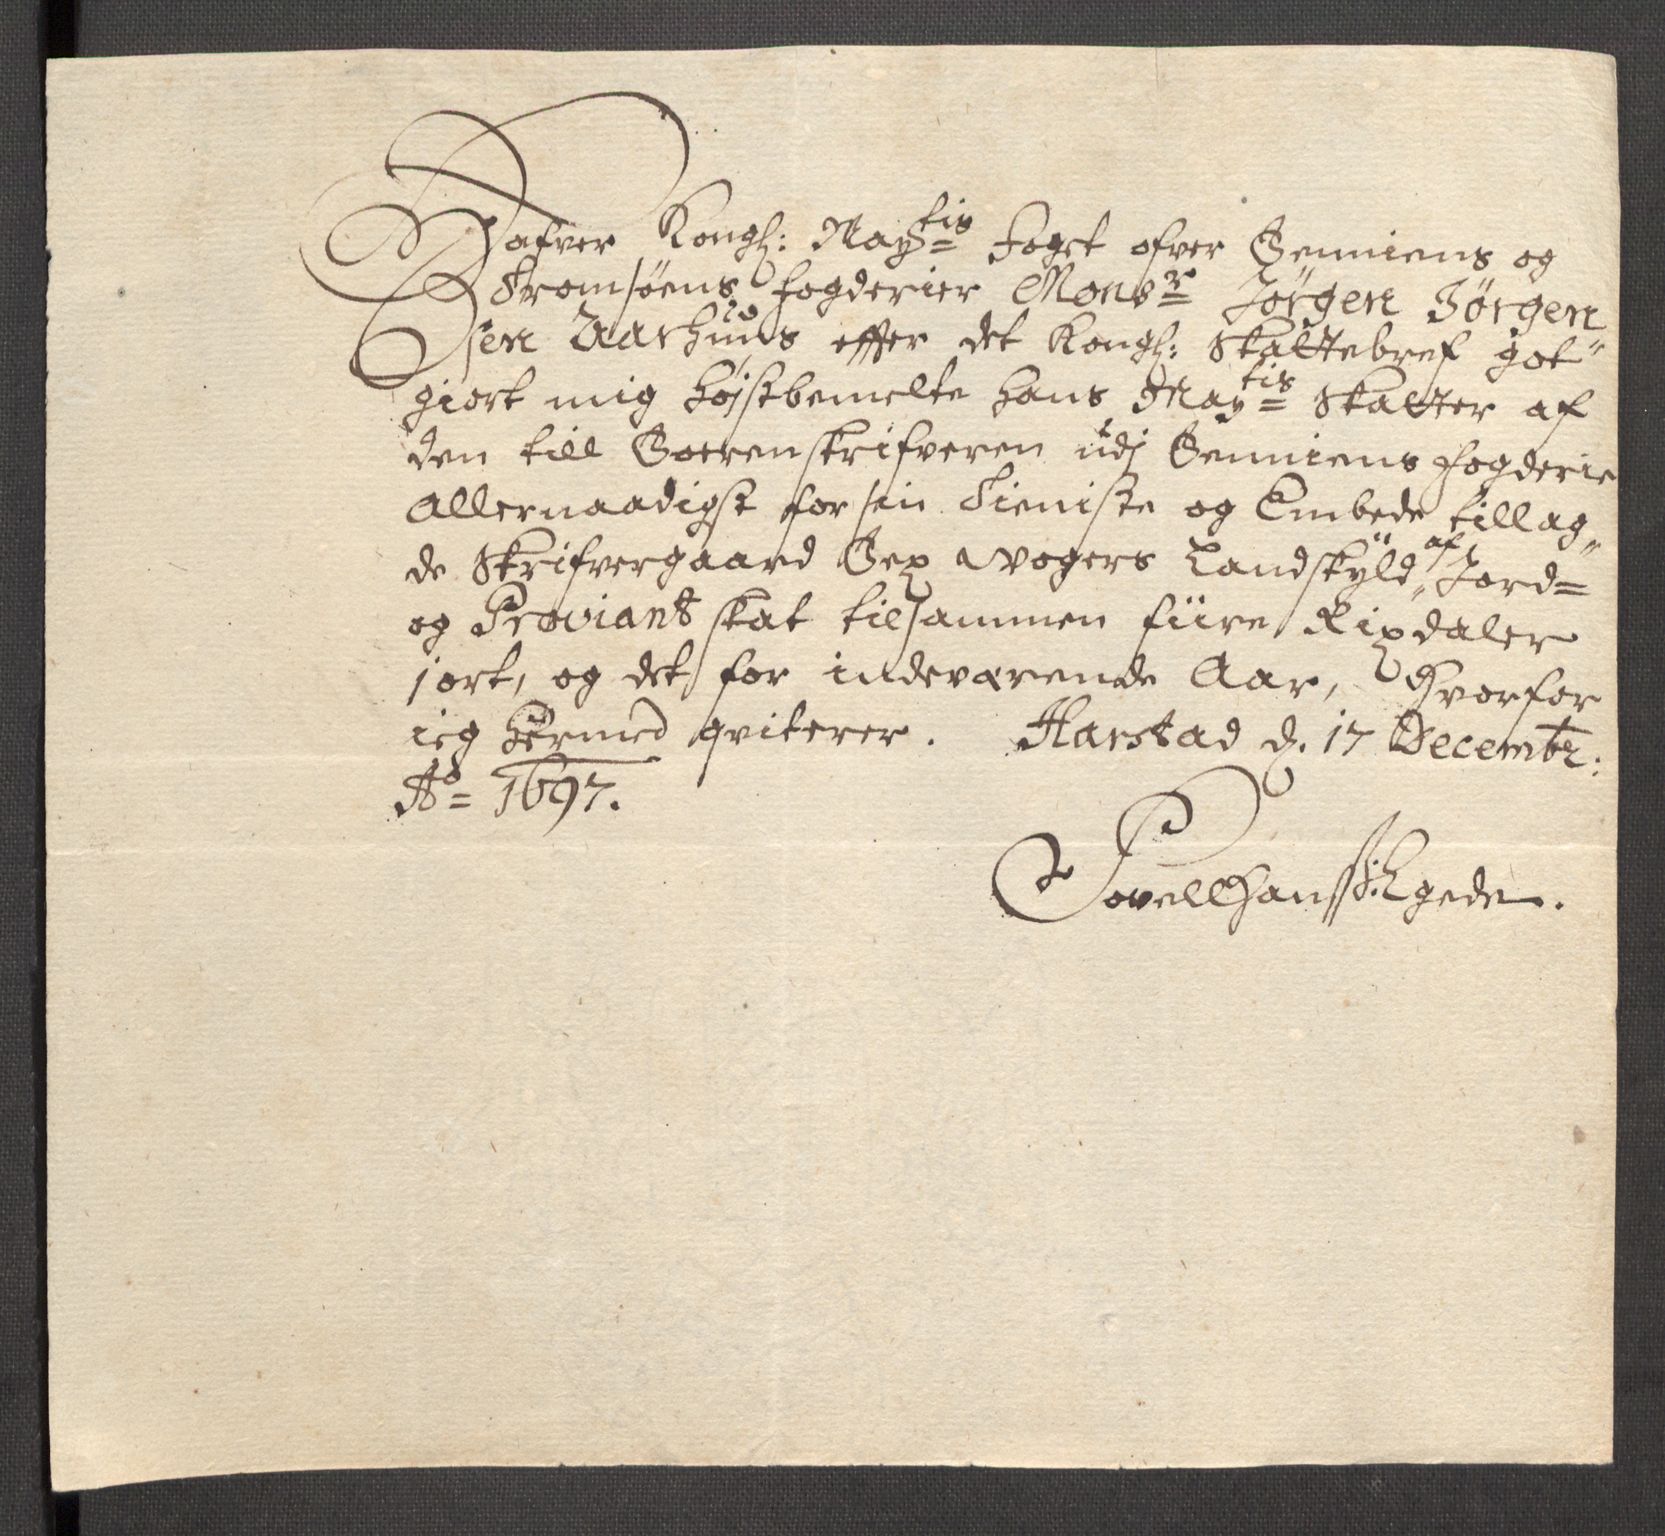 Hafver Kongl: May:tis Foget ofver Senniens og
Tromsøens fogderier Monsr Jörgen Jörgen
sen Aarhuus effter det Kongl: Skattebref got„
giort mig höjstbemelte hans May:tis Skatter af
den till Sorrenskrifveren udj Senniens fogderie
Allernaadigst for sin Tieniste og Embede tillag„
de Skrifvergaard Sex Wogers Landskyld, af Jord=
og Proviant skat tilsammen fiire Rixdaler
1 ort, og det for indeværende Aar, Hvorfor
ieg hermed qviterer. Harstad d. 17 Decembr:
Ao 1697.
Povell Hanss: Egede.